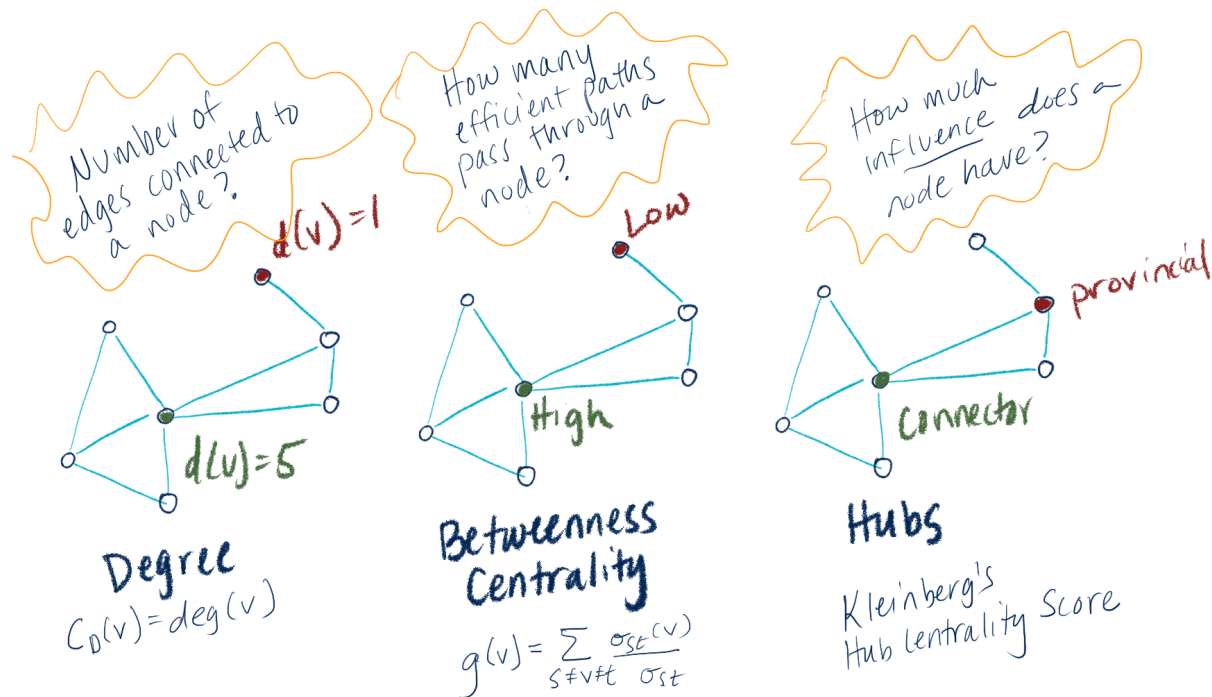 Number of
edges connected to
a node?
d(v)=1
d(v)=5
Degree
C_D(v)=deg(v)
How many
efficient paths
pass through a
node?
Low
High
Betweenness
Centrality
g(v) = ∑ s≠v≠t σst(v) / σst
How much
influence does a
node have?
provincial
Connector
Hubs
Kleinberg's
Hub Centrality Score